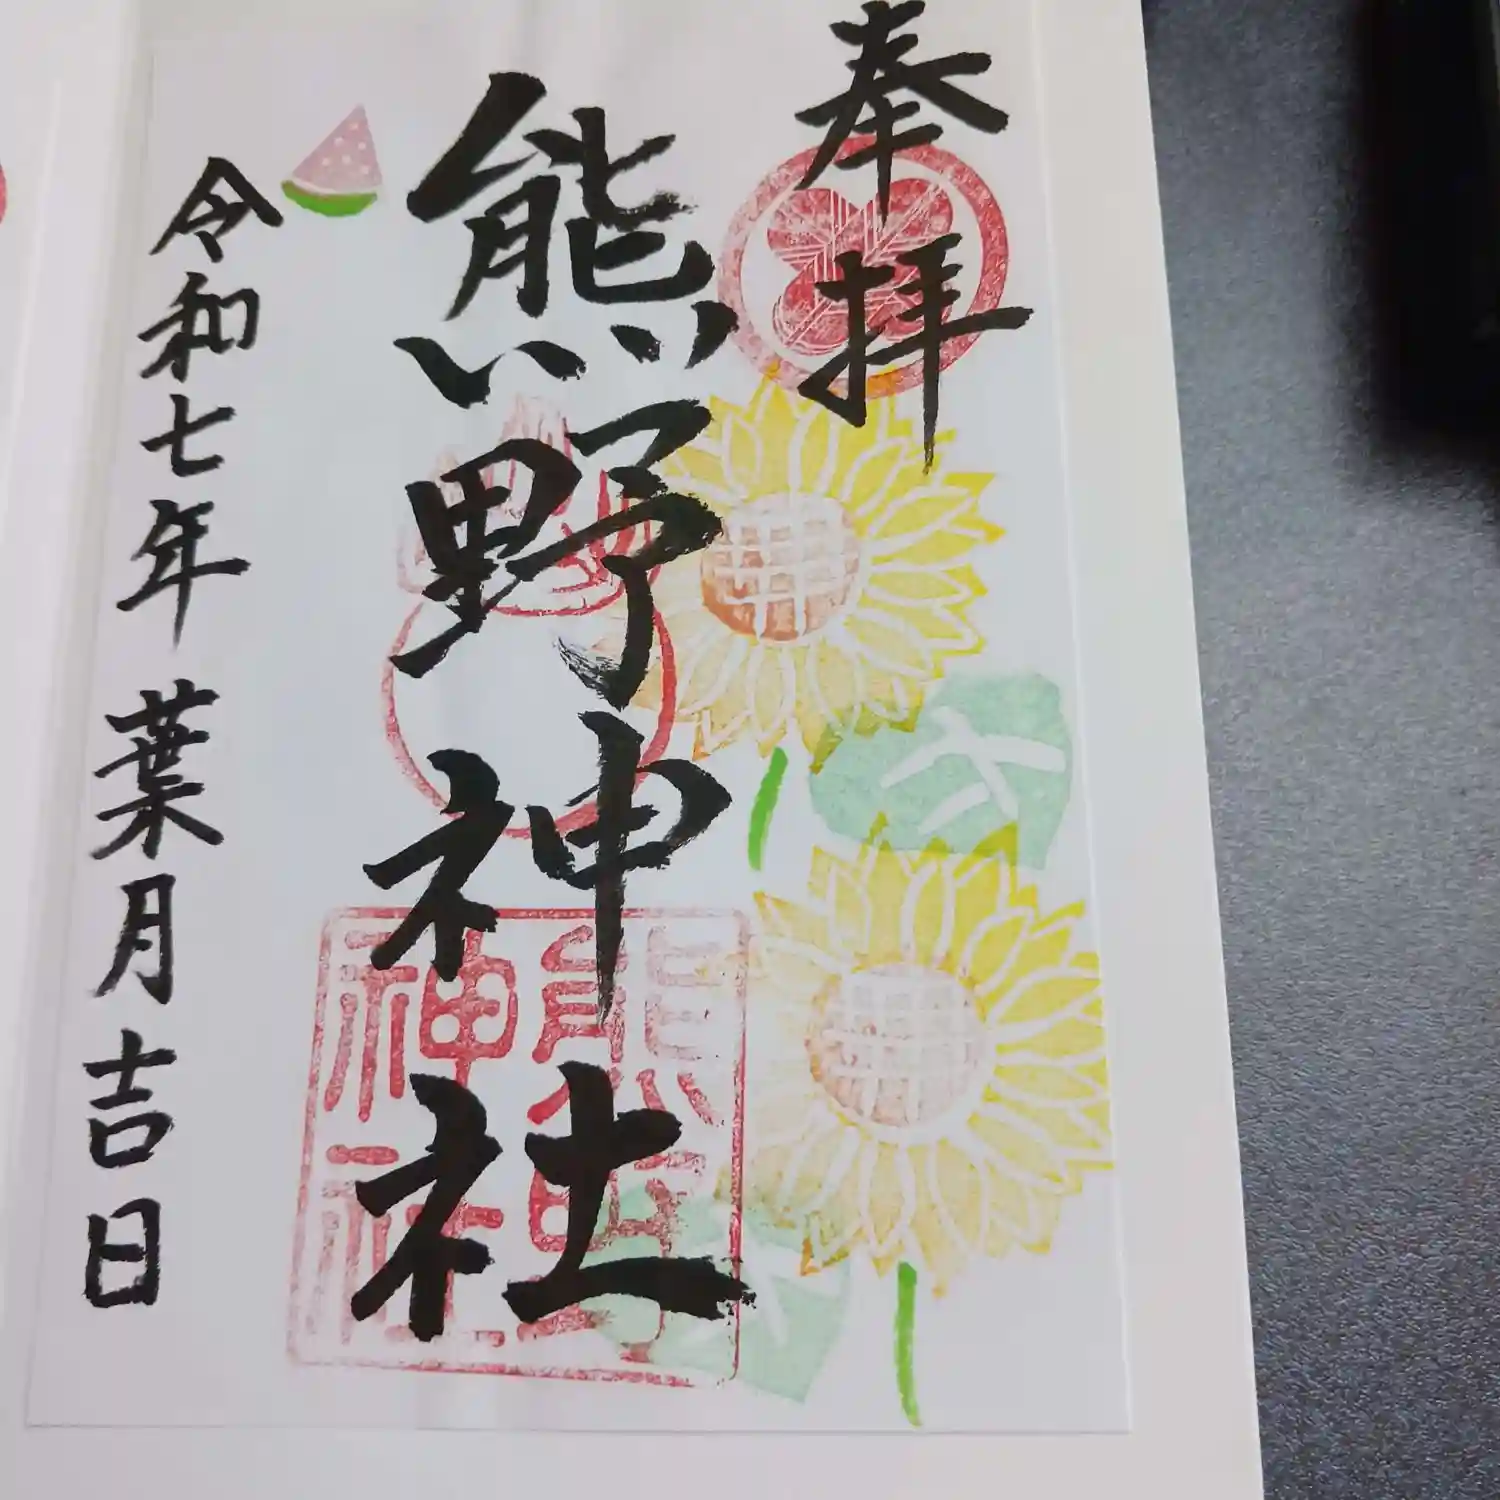 奉拝
熊野神社
熊野神社
令和七年 葉月吉日